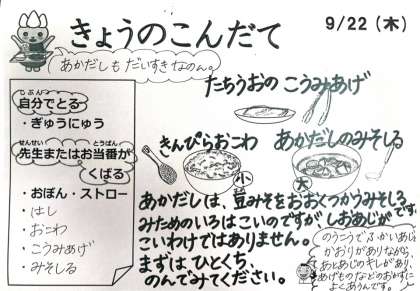 きょうのこんだて
9/22（木）
あかだしも だいすきなのん。
たちうおの こうみあげ
じぶん
自分でとる
・ぎゅうにゅう
せんせい とうばん
先生またはお当番が
くばる
・おぼん・ストロー
・はし
・おこわ
・こうみあげ
・みそしる
きんぴらおこわ
小
あかだしのみそしる
大
あかだしは、豆みそをおおくつかうみそしる
みためのいろはこいのですが しおあじが
こいわけではありません。
まずはひとくち、
のんでみてください。
のうこうでふかいあじ
かおりがありながら、
あとあじのキレがあり
あげものなどのおかずに
よくあうんです。